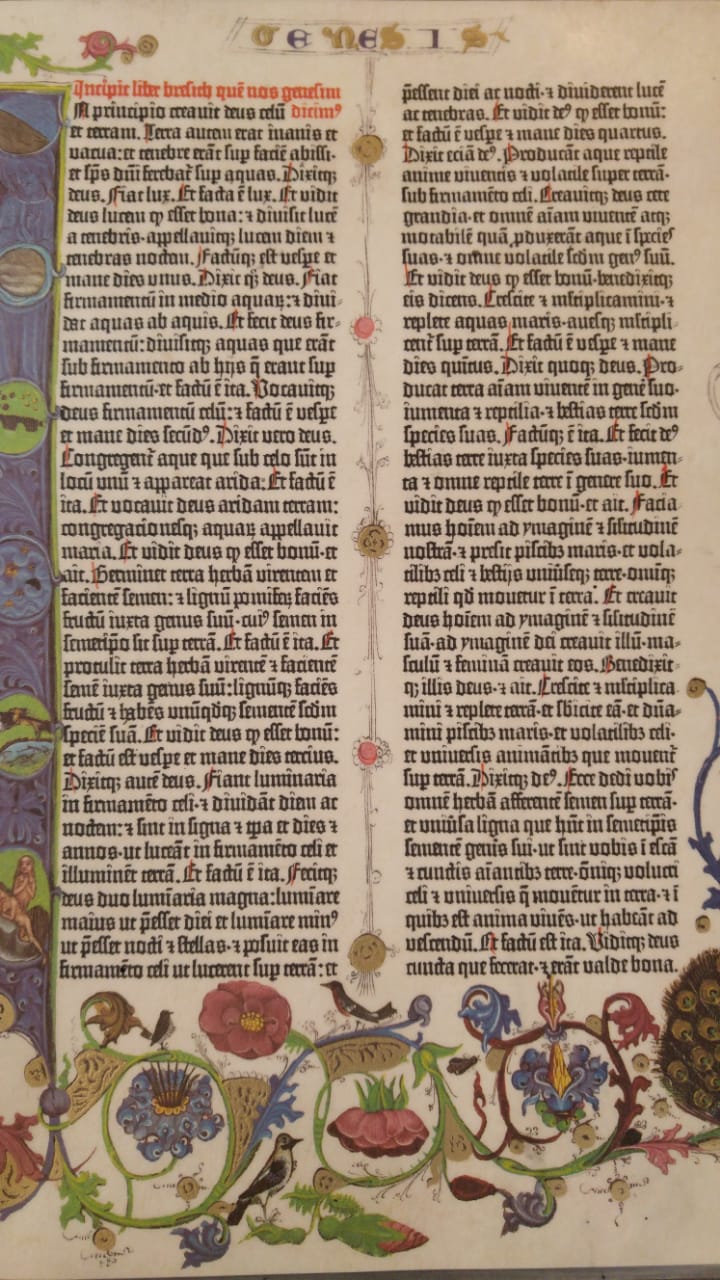 GENESIS I
Incipit liber bresich quē nos genesim
N principio creauit deus celū dicimꝰ
et terram. Terra autem erat inanis et
vacua: et tenebre erāt sup faciē abissi·
et sp̄s dn̄i ferebat᷑ sup aquas. Dixitqꝫ
deus. Fiat lux. Et facta ē lux. Et vidit
deus lucem ꝙ esset bona: ⁊ diuisit lucē
a tenebris·appellauitqꝫ lucem diem ⁊
tenebras noctem. Factūqꝫ est vespe et
mane dies vnus. Dixit qꝫ deus. Fiat
firmamentū in medio aquaꝝ: ⁊ diui-
dat aquas ab aquis. Et fecit deus fir-
mamentū: diuisitqꝫ aquas que erāt
sub firmamento ab hijs q̄ erant sup
firmamentū· et factū ē ita. Vocauitqꝫ
deus firmamentū celū: ⁊ factū ē vespe
et mane dies secūdꝰ. Dixit vero deus.
Congregent᷑ aque que sub celo sūt in
locū vnū ⁊ appareat arida. Et factū ē
ita. Et vocauit deus aridam terram:
congregacionesqꝫ aquaꝝ appellauit
maria. Et vidit deus ꝙ esset bonū· et
ait. Germinet terra herbā virentem et
facientē semen: ⁊ lignū pomiferꝫ faciēs
fructū iuxta genus suū· cuiꝰ semen in
semetip̄o sit sup terrā. Et factū ē ita. Et
protulit terra herbā virentē ⁊ facientē
semē iuxta genus suū: lignūqꝫ faciēs
fructū ⁊ habēs vnūqdqꝫ sementē scdm
speciē suā. Et vidit deus ꝙ esset bonū:
et factū est vespe et mane dies tercius.
Dixitqꝫ autē deus. Fiant luminaria
in firmamēto celi· ⁊ diuidāt diem ac
noctem: ⁊ sint in signa ⁊ tp̄a et dies ⁊
annos· ut luceāt in firmamēto celi et
illuminēt terrā. Et factū ē ita. Fecitqꝫ
deus duo lumīaria magna: lumīare
maius ut p̄esset diei et lumīare minꝰ
ut p̄esset nocti ⁊ stellas· ⁊ posuit eas in
firmamēto celi ut lucerent sup terrā: et
p̄essent diei ac nocti· ⁊ diuiderent lucē
ac tenebras. Et vidit deꝰ ꝙ esset bonū:
et factū ē vespe ⁊ mane dies quartus.
Dixit eciā deꝰ. Producāt aque reptile
anime viuentis ⁊ volatile super terrā·
sub firmamēto celi. Creauitqꝫ deus cete
grandia· et omnē aīam viuentē atqꝫ
motabilē quā ꝓduxerāt aque ī species
suas· ⁊ omne volatile scdm genꝰ suū.
Et vidit deus ꝙ esset bonū· benedixitqꝫ
eis dicens. Crescite ⁊ mltiplicamini· ⁊
replete aquas maris· auesqꝫ mltipli-
cent᷑ sup terrā. Et factū ē vespe ⁊ mane
dies quītus. Dixit quoqꝫ deus. Pro-
ducat terra aīam viuentē in genē suo·
iumenta ⁊ reptilia· ⁊ bestias terre scdm
species suas. Factūqꝫ ē ita. Et fecit deꝰ
bestias terre iuxta species suas· iumen-
ta ⁊ omne reptile terre ī genere suo. Et
vidit deus ꝙ esset bonū· et ait. Facia-
mus hoīem ad ymaginē ⁊ silitudinē
nostrā· ⁊ presit piscibꝫ maris· et vola-
tilibꝫ celi ⁊ bestijs vniūseqꝫ terre· omīqꝫ
reptili qd mouetur ī terra. Et creauit
deus hoīem ad ymaginē ⁊ silitudinē
suā· ad ymaginē dei creauit illū· ma-
sculū ⁊ feminā creauit eos. Benedixit-
qꝫ illis deus· ⁊ ait. Crescite ⁊ mltiplica-
mini ⁊ replete terrā· et sbicite eā· et dn̄a-
mini piscibꝫ maris· et volatilibꝫ celi·
et vniuersis animātibꝫ que mouent᷑
sup terrā. Dixitqꝫ deꝰ. Ecce dedi vobis
omnē herbā afferentē semen sup terrā·
et vniūsa ligna que hn̄t in semetip̄is
sementē genis sui· ut sint vobis ī escā
⁊ cunctis aīantibꝫ terre· om̄iqꝫ volucri
celi ⁊ vniuersis q̄ mouētur in terra· ⁊ ī
quibꝫ est anima viuēs· ut habeāt ad
vescendū. Et factū est ita. Viditqꝫ deus
cuncta que fecerat· ⁊ erāt valde bona.